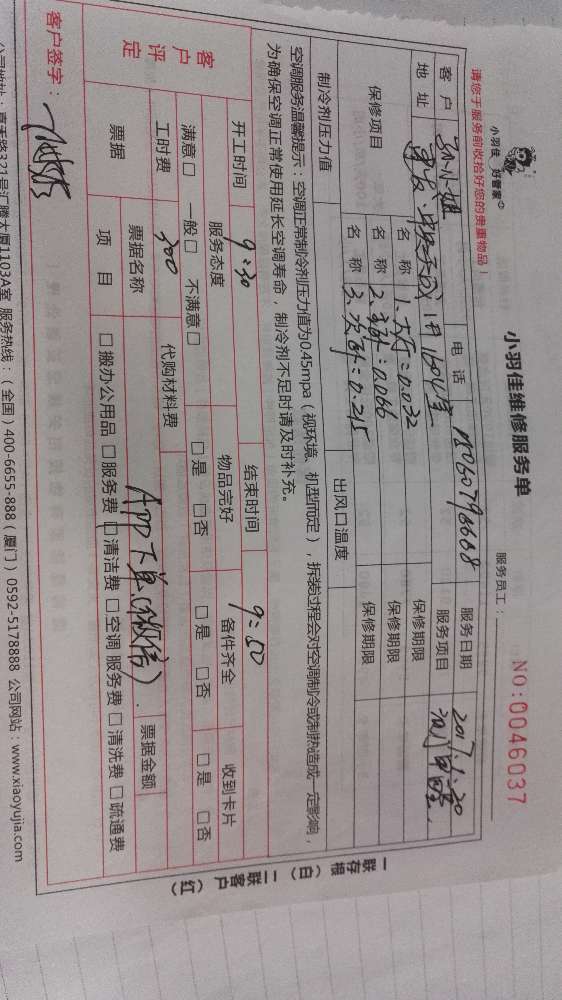 小羽佳 好管家
小羽佳维修服务单
NO:0046037
请您于服务前收拾好您的贵重物品！
服务员工：
客户 孙小姐 电话 服务日期 2017.1.20
地址 1604室 服务项目 测甲醛
保修项目
名称 1. 大厅=0.032 保修期限
名称 2. 主卧=0.066 保修期限
名称 3. 次卧=0.215 保修期限
制冷剂压力值 出风口温度
空调服务温馨提示：空调正常制冷剂压力值为0.45mpa（视环境、机型而定），拆装过程会对空调制冷或制热造成一定影响，
为确保空调正常使用延长空调寿命，制冷剂不足时请及时补充。
开工时间 9:30 结束时间 9:50
客户评定
服务态度 物品完好 备件齐全 收到卡片
满意□ 一般□ 不满意□ □是 □否 □是 □否 □是 □否
工时费 300 代购材料费
票据 票据名称 App下单(微信). 票据金额
项目 □搬办公用品 □服务费 □清洁费 □空调服务费 □清洗费 □疏通费
客户签字：
321号汇腾大厦1103A室 服务热线：（全国）400-6655-888（厦门）0592-5178888 公司网站：www.xiaoyujia.com
一联存根（白） 二联客户（红）